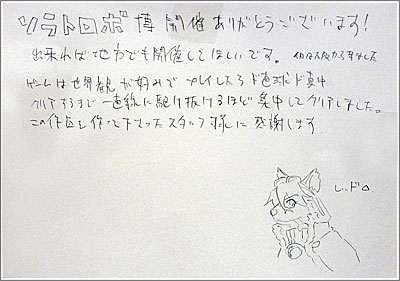 ソラトロボ博 開催ありがとうございます!
出来れば地方でも開催してほしいです。 私は大阪から来ました
ゲームは世界観が好みでプレイしたらド直球ド真中
クリアするまで一直線に駆け抜けるほど集中してクリアしました。
この作品を作って下さったスタッフ様に感謝します
レッド